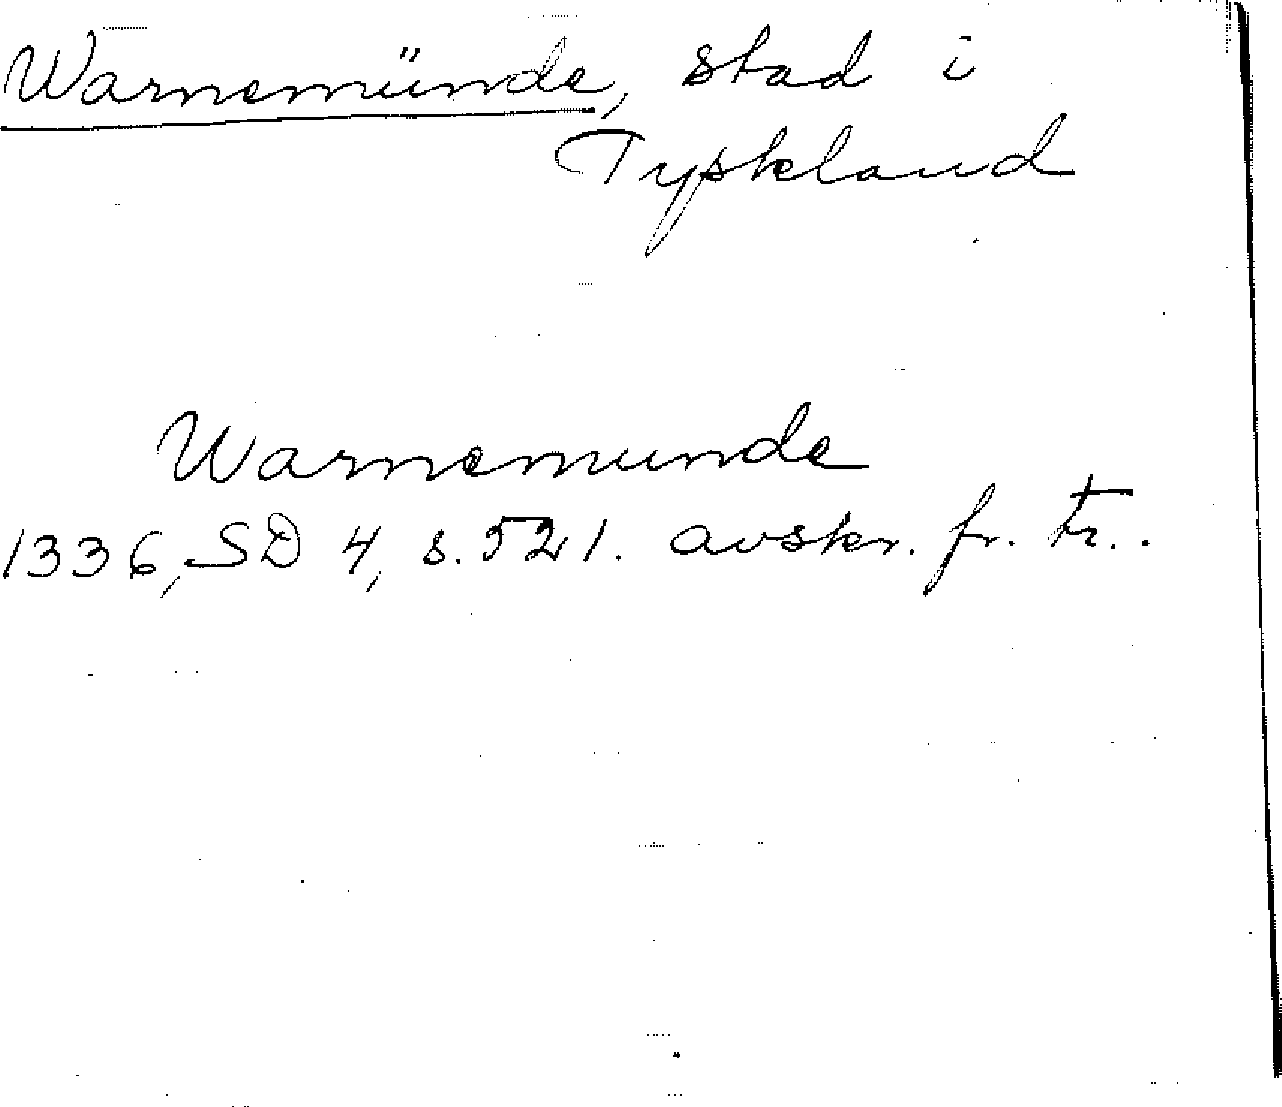 Warnemünde, stad i
Tyskland
Warnemunde
1336, SD 4, s. 521. avskr. fr. tr..